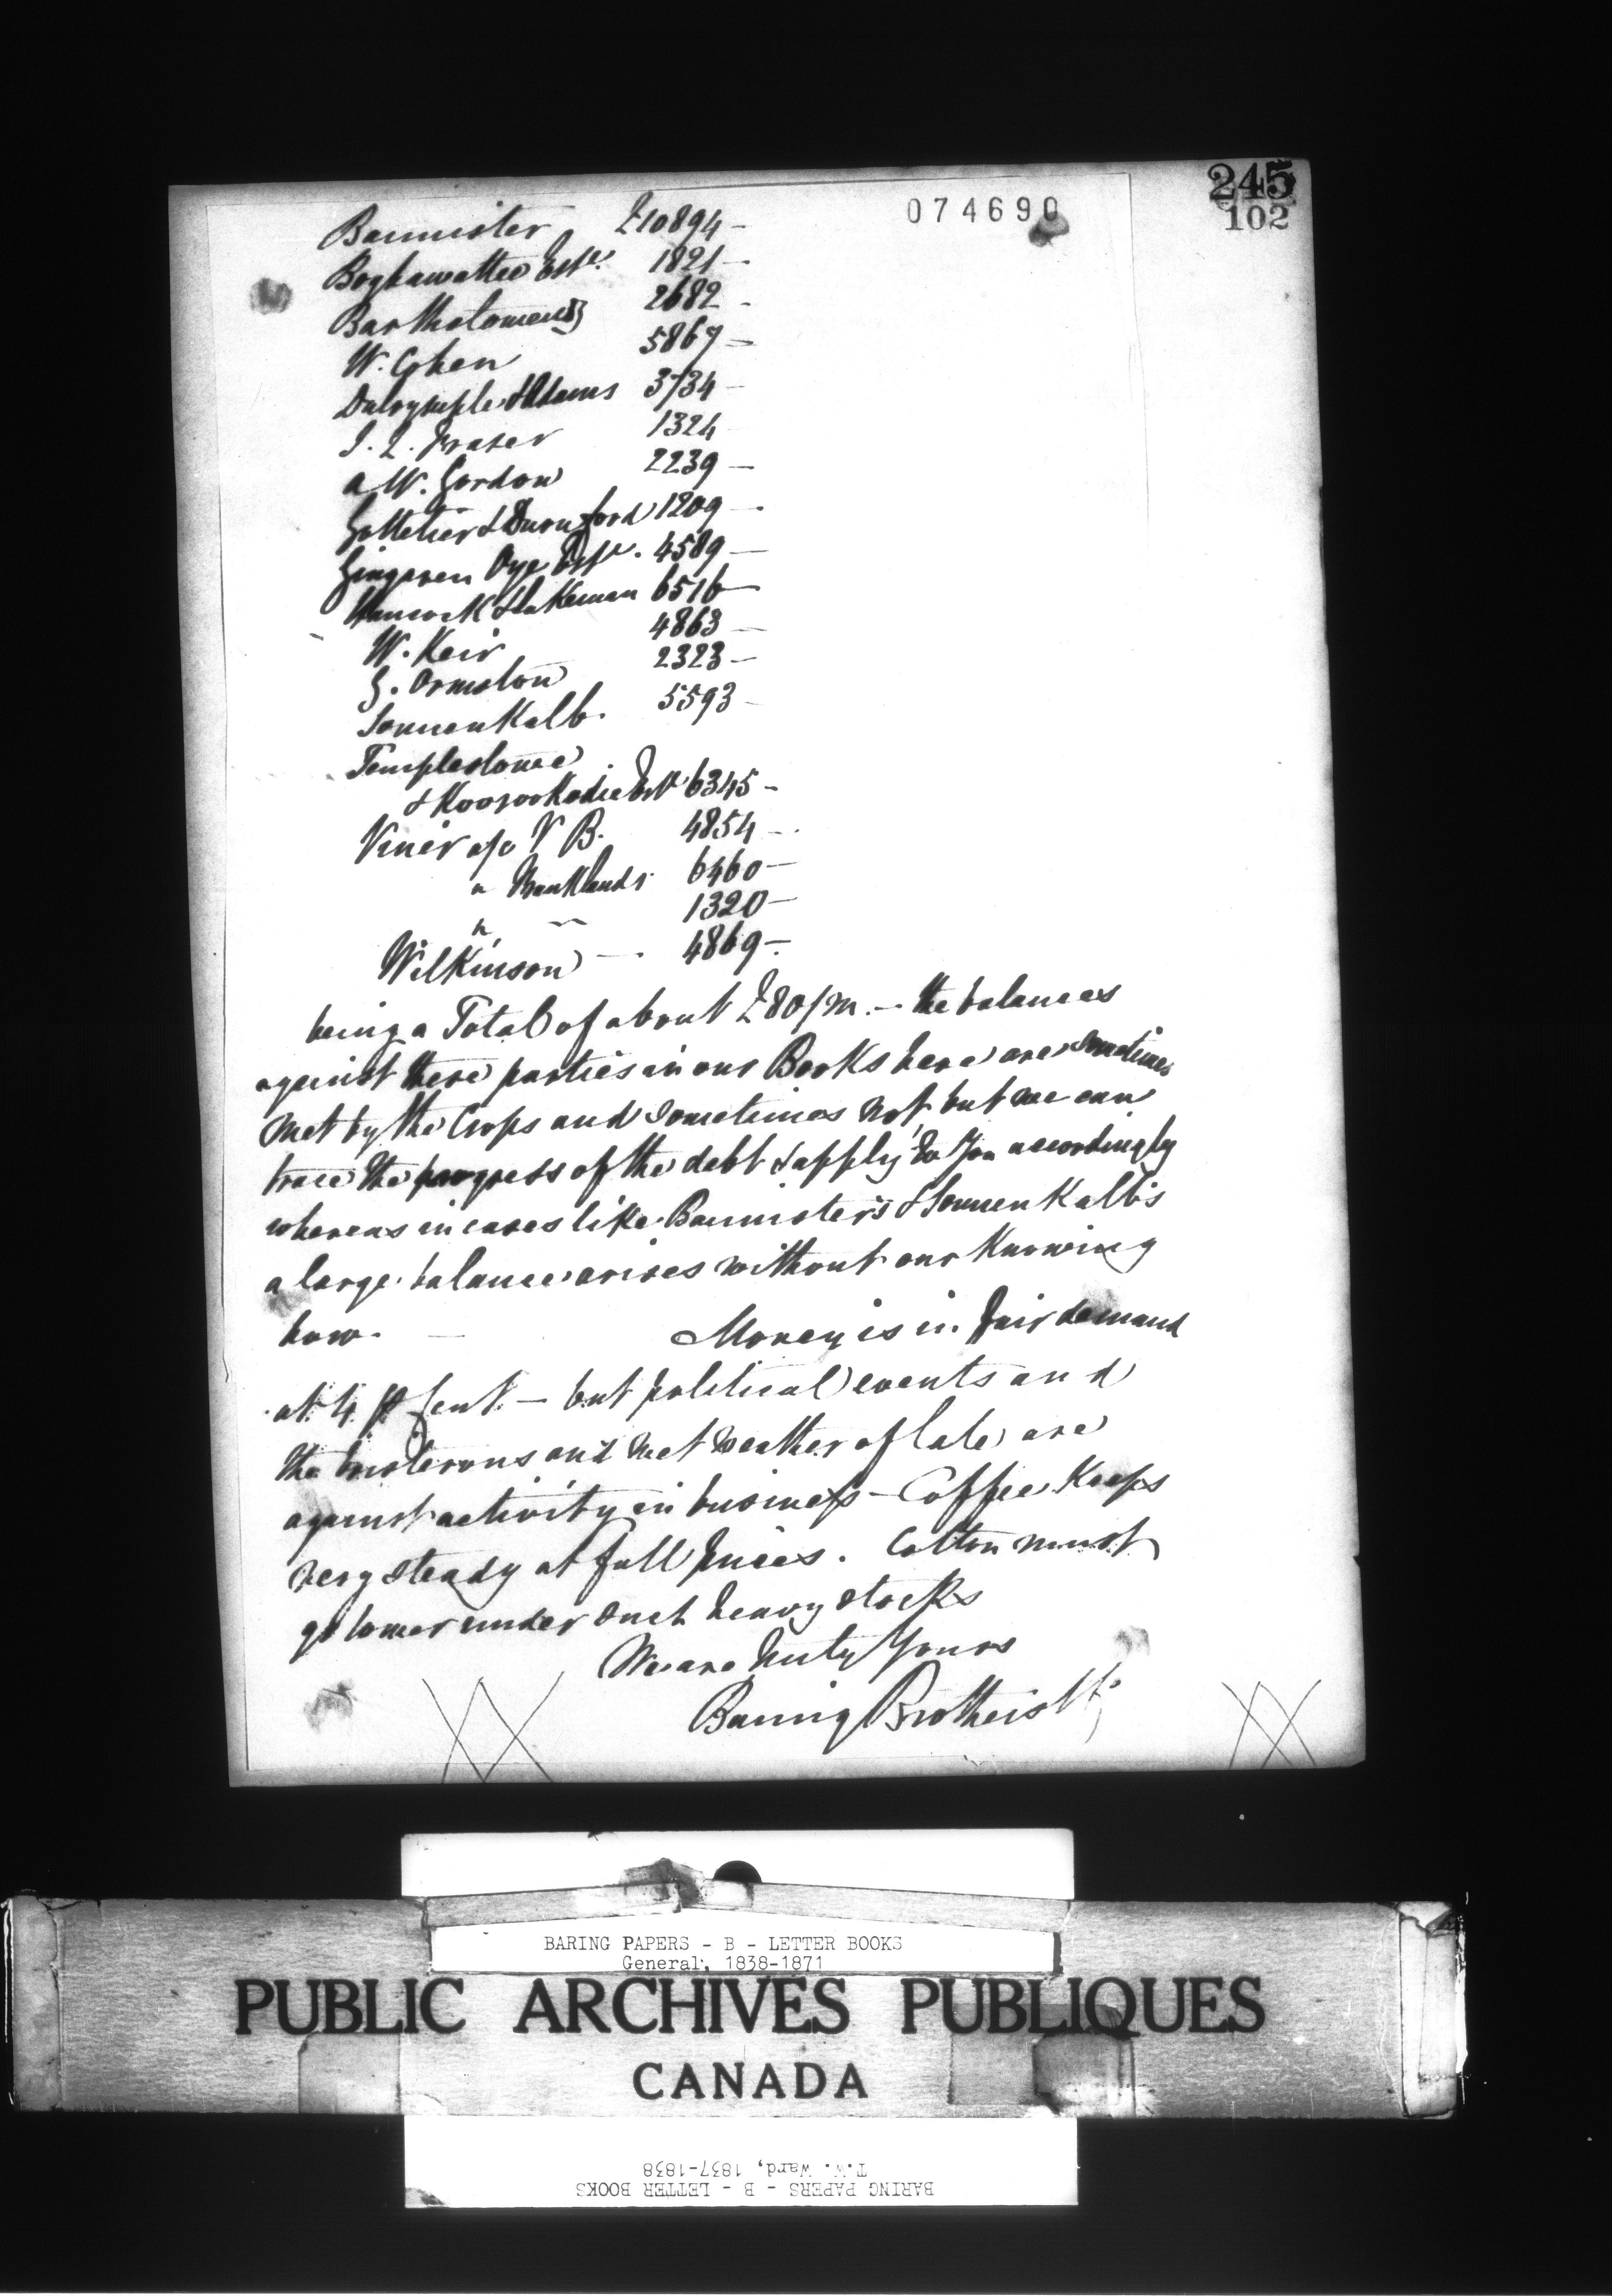 245
102
074690
Bannister £10894 -
Boghawattee Este. 1821 -
Bartholomeusz 2682 -
W. Cohen 5867 -
Dalrymple & Adams 3734 -
J. L. Fraser 1324
A W. Gordon 2239 -
& Durnford 1209 -
Oya Este. 4589 -
Hancock & Lakeman 6516 -
W. Keir 4863 -
G. Ormston 2323 -
Sonnenkalb. 5593 -
Templestowe
& Est 6345 -
Viner a/c V B. 4854 -
" Banklands 6460 -
" 1320 -
Wilkinson - 4869 -.
being a Total of about £80/m. - the balances
against these parties in our Books here are sometimes
met by the Crops and sometimes not, but we can
trace the progress of the debt & apply to you accordingly
whereas in cases like Bannister's & Sonnenkalb's
a large balance arises without our Knowing
how. - Money is in fair demand
at 4 p Cent. - but political events and
the boisterous and wet weather of late are
against activity in business - Coffee Keeps
very steady at full prices. Cotton must
go lower under such heavy stocks
We are truly Yours
Baring Brothers & Co
BARING PAPERS - B - LETTER BOOKS
General, 1838-1871
PUBLIC ARCHIVES PUBLIQUES
CANADA
BARING PAPERS - B - LETTER BOOKS
T.W. Ward, 1837-1838